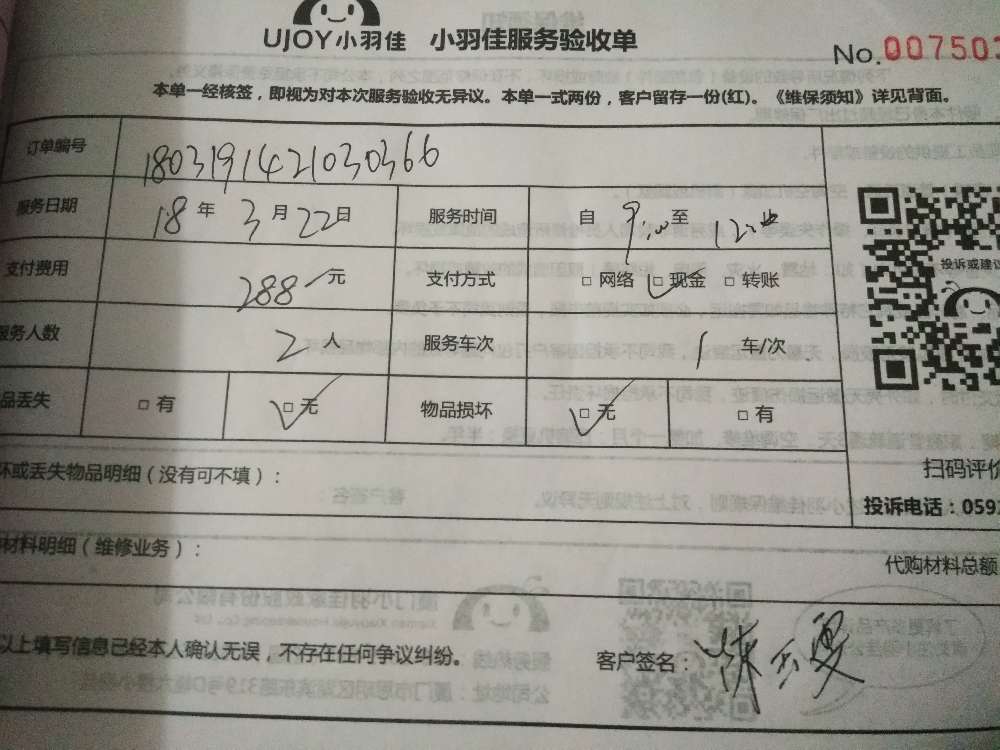 UJOY小羽佳 小羽佳服务验收单
No.007503
本单一经核签，即视为对本次服务验收无异议。本单一式两份，客户留存一份(红)。《维保须知》详见背面。
订单编号 1803191421030366
服务日期 18 年 3 月 22 日 服务时间 自 9:00 至
支付费用 288 元 支付方式 □ 网络 □ 现金 □ 转账
服务人数 2 人 服务车次 1 车/次
品丢失 □ 有 □ 无 物品损坏 □ 无 □ 有
投诉或建议
坏或丢失物品明细（没有可不填）：
扫码评价
投诉电话：0592
材料明细（维修业务）：
代购材料总额
以上填写信息已经本人确认无误，不存在任何争议纠纷。 客户签名：